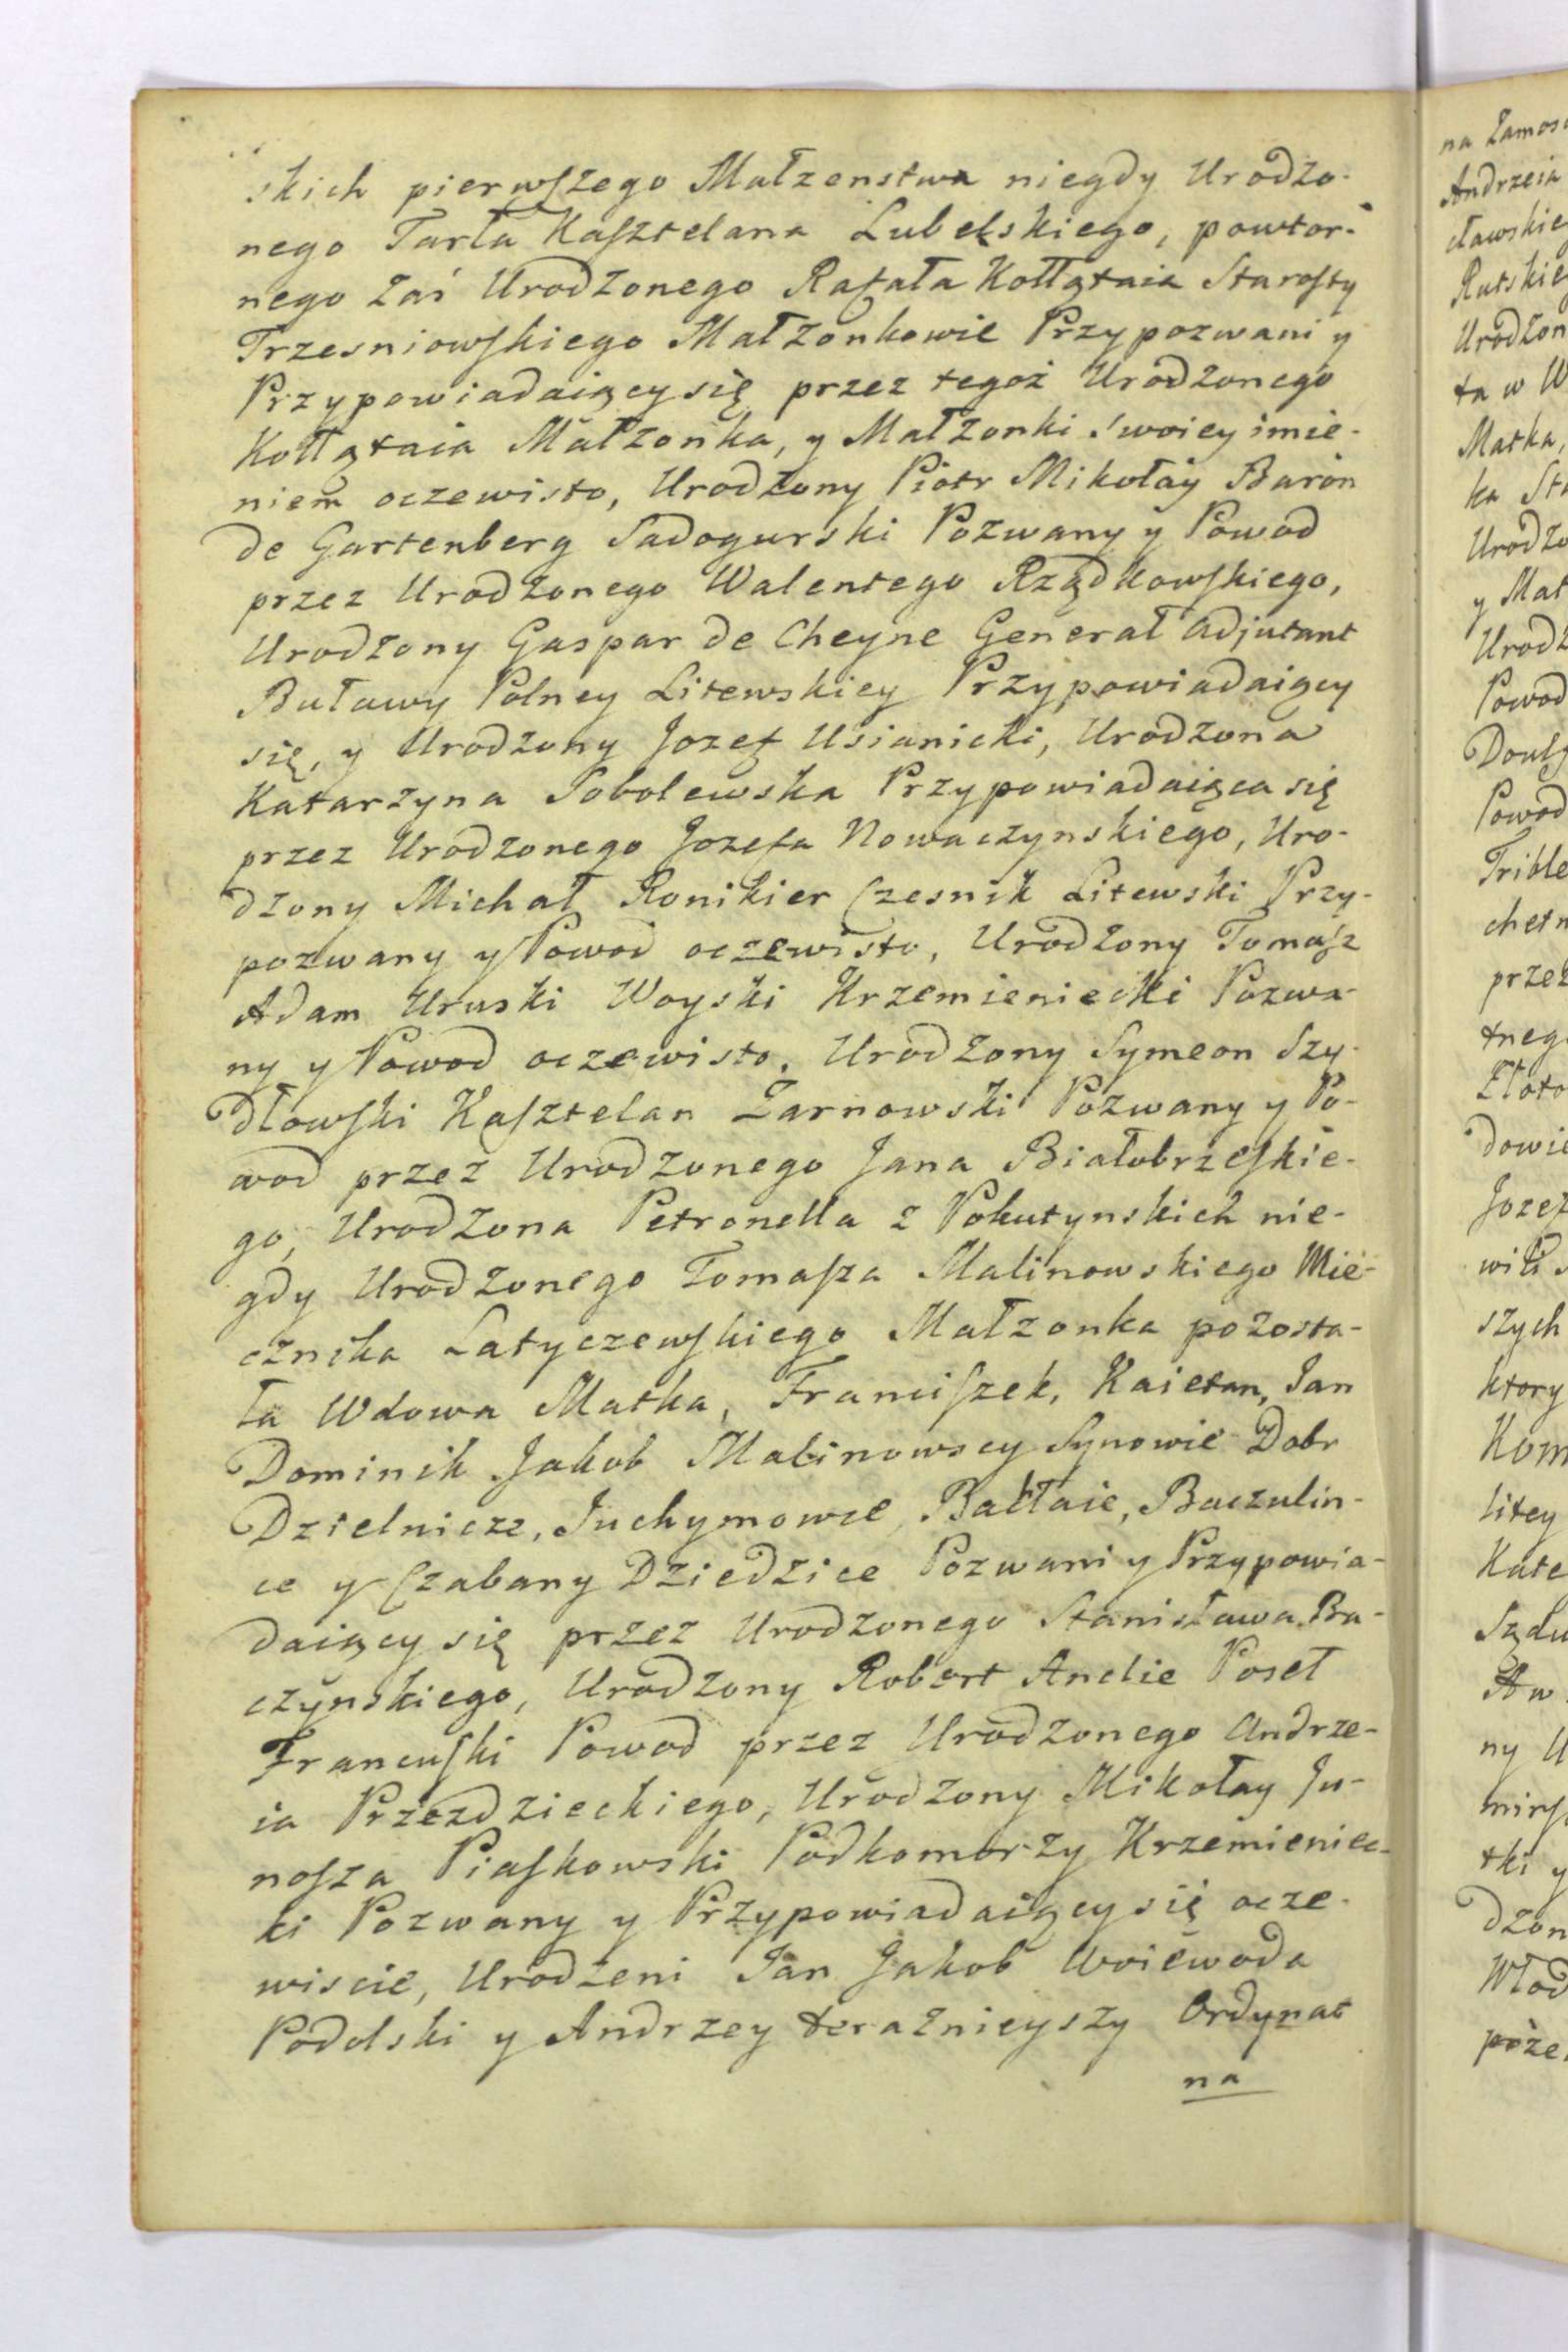 skich pierwſzego Małzenstwa niegdy Urodzo-
nego Tarła Kaſztelana Lubelskiego, powtor-
nego Zaś Urodzonego Rafała Kołłątaia Staroſty
Trzesniowſkiego Małzonkowie Przypozwani y
Przypowiadaiący się przez tegoż Urodzonego
Kołłątaia Małzonka, y Małzonki Swoiey imie-
niem oczewisto, Urodzony Piotr Mikołay Baron
de Gartenberg Sadogurski Pozwany y Powod
przez Urodzonego Walentego Rządkowſkiego,
Urodzony Gaspar de Cheyne Generał Adjutant
Buławy Polney Litewskiey Przypowiadaiący
się, y Urodzony Jozef Usianicki, Urodzona
Katarzyna Sobolewska Przypowiadaiąca się
przez Urodzonego Jozefa Nowaczynskiego, Uro-
dzony Michał Ronikier Czesnik Litewski Przy-
pozwany y Powod oczewisto, Urodzony Tomaſz
Adam Uruski Woyski Krzemieniecki Pozwa-
ny y Powod oczewisto, Urodzony Symeon Szy-
dłowſki Kaſztelan Zarnowski Pozwany y Po-
wod przez Urodzonego Jana Białobrzeſkie-
go, Urodzona Petronella z Pokutynskich nie-
gdy Urodzonego Tomaſza Malinowskiego Mie-
cznika Latyczewſkiego Małzonka pozosta-
ła Wdowa Matka, Franciſzek, Kaietan, Jan
Dominik Jakob Malinowscy Synowie Dobr
Dzielnicze, Juchymowce, Bałłaie, Buczulin-
ce y Czabany Dziedzice Pozwani y Przypowia-
daiący się przez Urodzonego Stanisława Bu-
czynskiego, Urodzony Robert Anclie Poseł
Francuſki Powod przez Urodzonego Andrze-
ia Przezdzieckiego, Urodzony Mikołay Ju-
noſza Piaſkowski Podkomorzy Krzemieniec-
ki Pozwany y Przypowiadaiący się ocze-
wiscie, Urodzeni Jan Jakob Woiewoda
Podolski y Andrzey teraznieyszy Ordynat
na
na Zamos
Andrzeia
cławskie
Rutskie
Urodzon
ta w W
Matka,
ka St
Urodzo
y Mał
Urodz
Powod
Powod
Trible
przez
tneg
Złoto
dowie
Jozef
szych
ktory
Kom
litey
Kate
Sądu
ny U
dzon
Włod